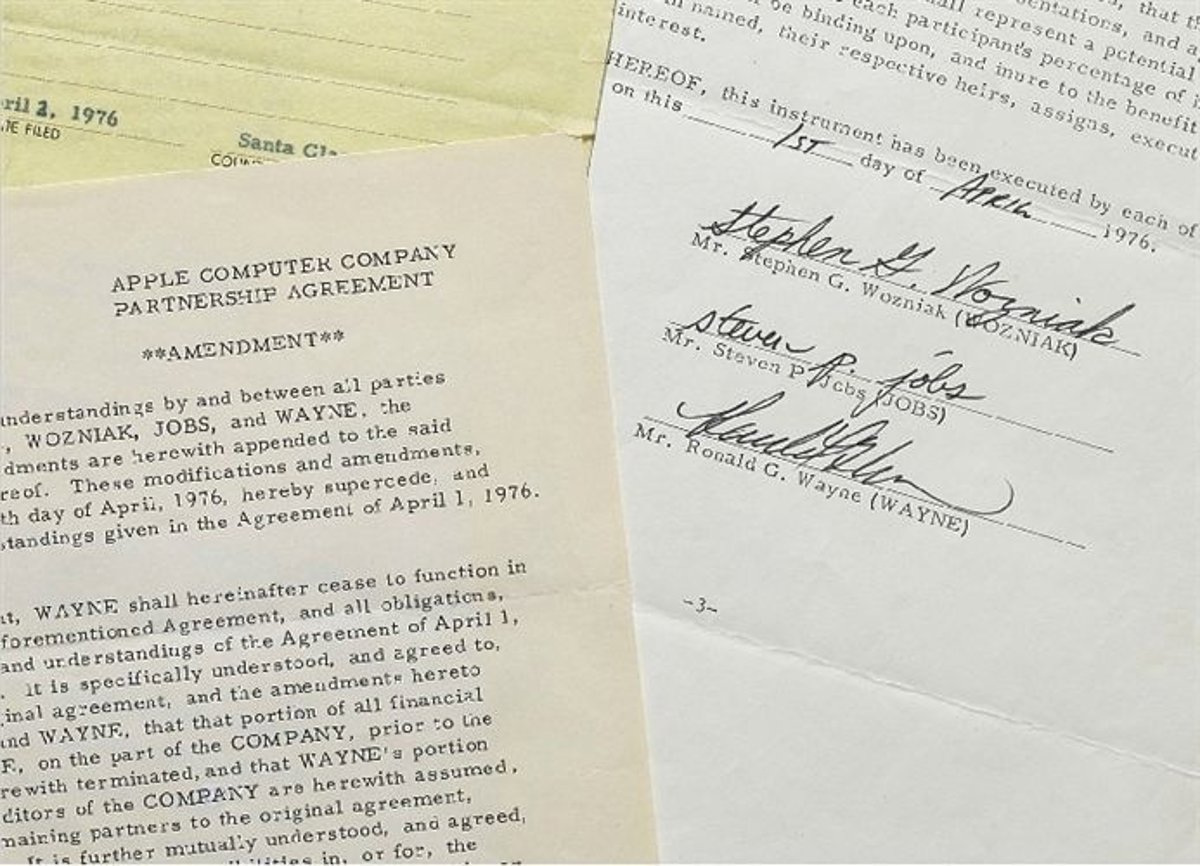 ril 2, 1976
TE FILED
Santa Cla
COUN
APPLE COMPUTER COMPANY
PARTNERSHIP AGREEMENT
**AMENDMENT**
understandings by and between all parties
, WOZNIAK, JOBS, and WAYNE, the
dments are herewith appended to the said
reof. These modifications and amendments,
th day of April, 1976, hereby supercede, and
standings given in the Agreement of April 1, 1976.
nt, WAYNE shall hereinafter cease to function in
forementioned Agreement, and all obligations,
and understandings of the Agreement of April 1,
. It is specifically understood, and agreed to,
inal agreement, and the amendments hereto
and WAYNE, that that portion of all financial
E, on the part of the COMPANY, prior to the
rewith terminated, and that WAYNE's portion
ditors of the COMPANY are herewith assumed,
maining partners to the original agreement,
It is further mutually understood, and agreed,
bilities in, or for, the
sentations, and a
, that th
all represent a potential
each participant's percentage of
be binding upon, and inure to the benefit
in named, their respective heirs, assigns, execut
interest.
HEREOF, this instrument has been executed by each of
on this 1ST day of APRIL 1976.
Stephen G. Wozniak
Mr. Stephen G. Wozniak (WOZNIAK)
steven p. jobs
Mr. Steven P. Jobs (JOBS)
Mr. Ronald G. Wayne (WAYNE)
-3-